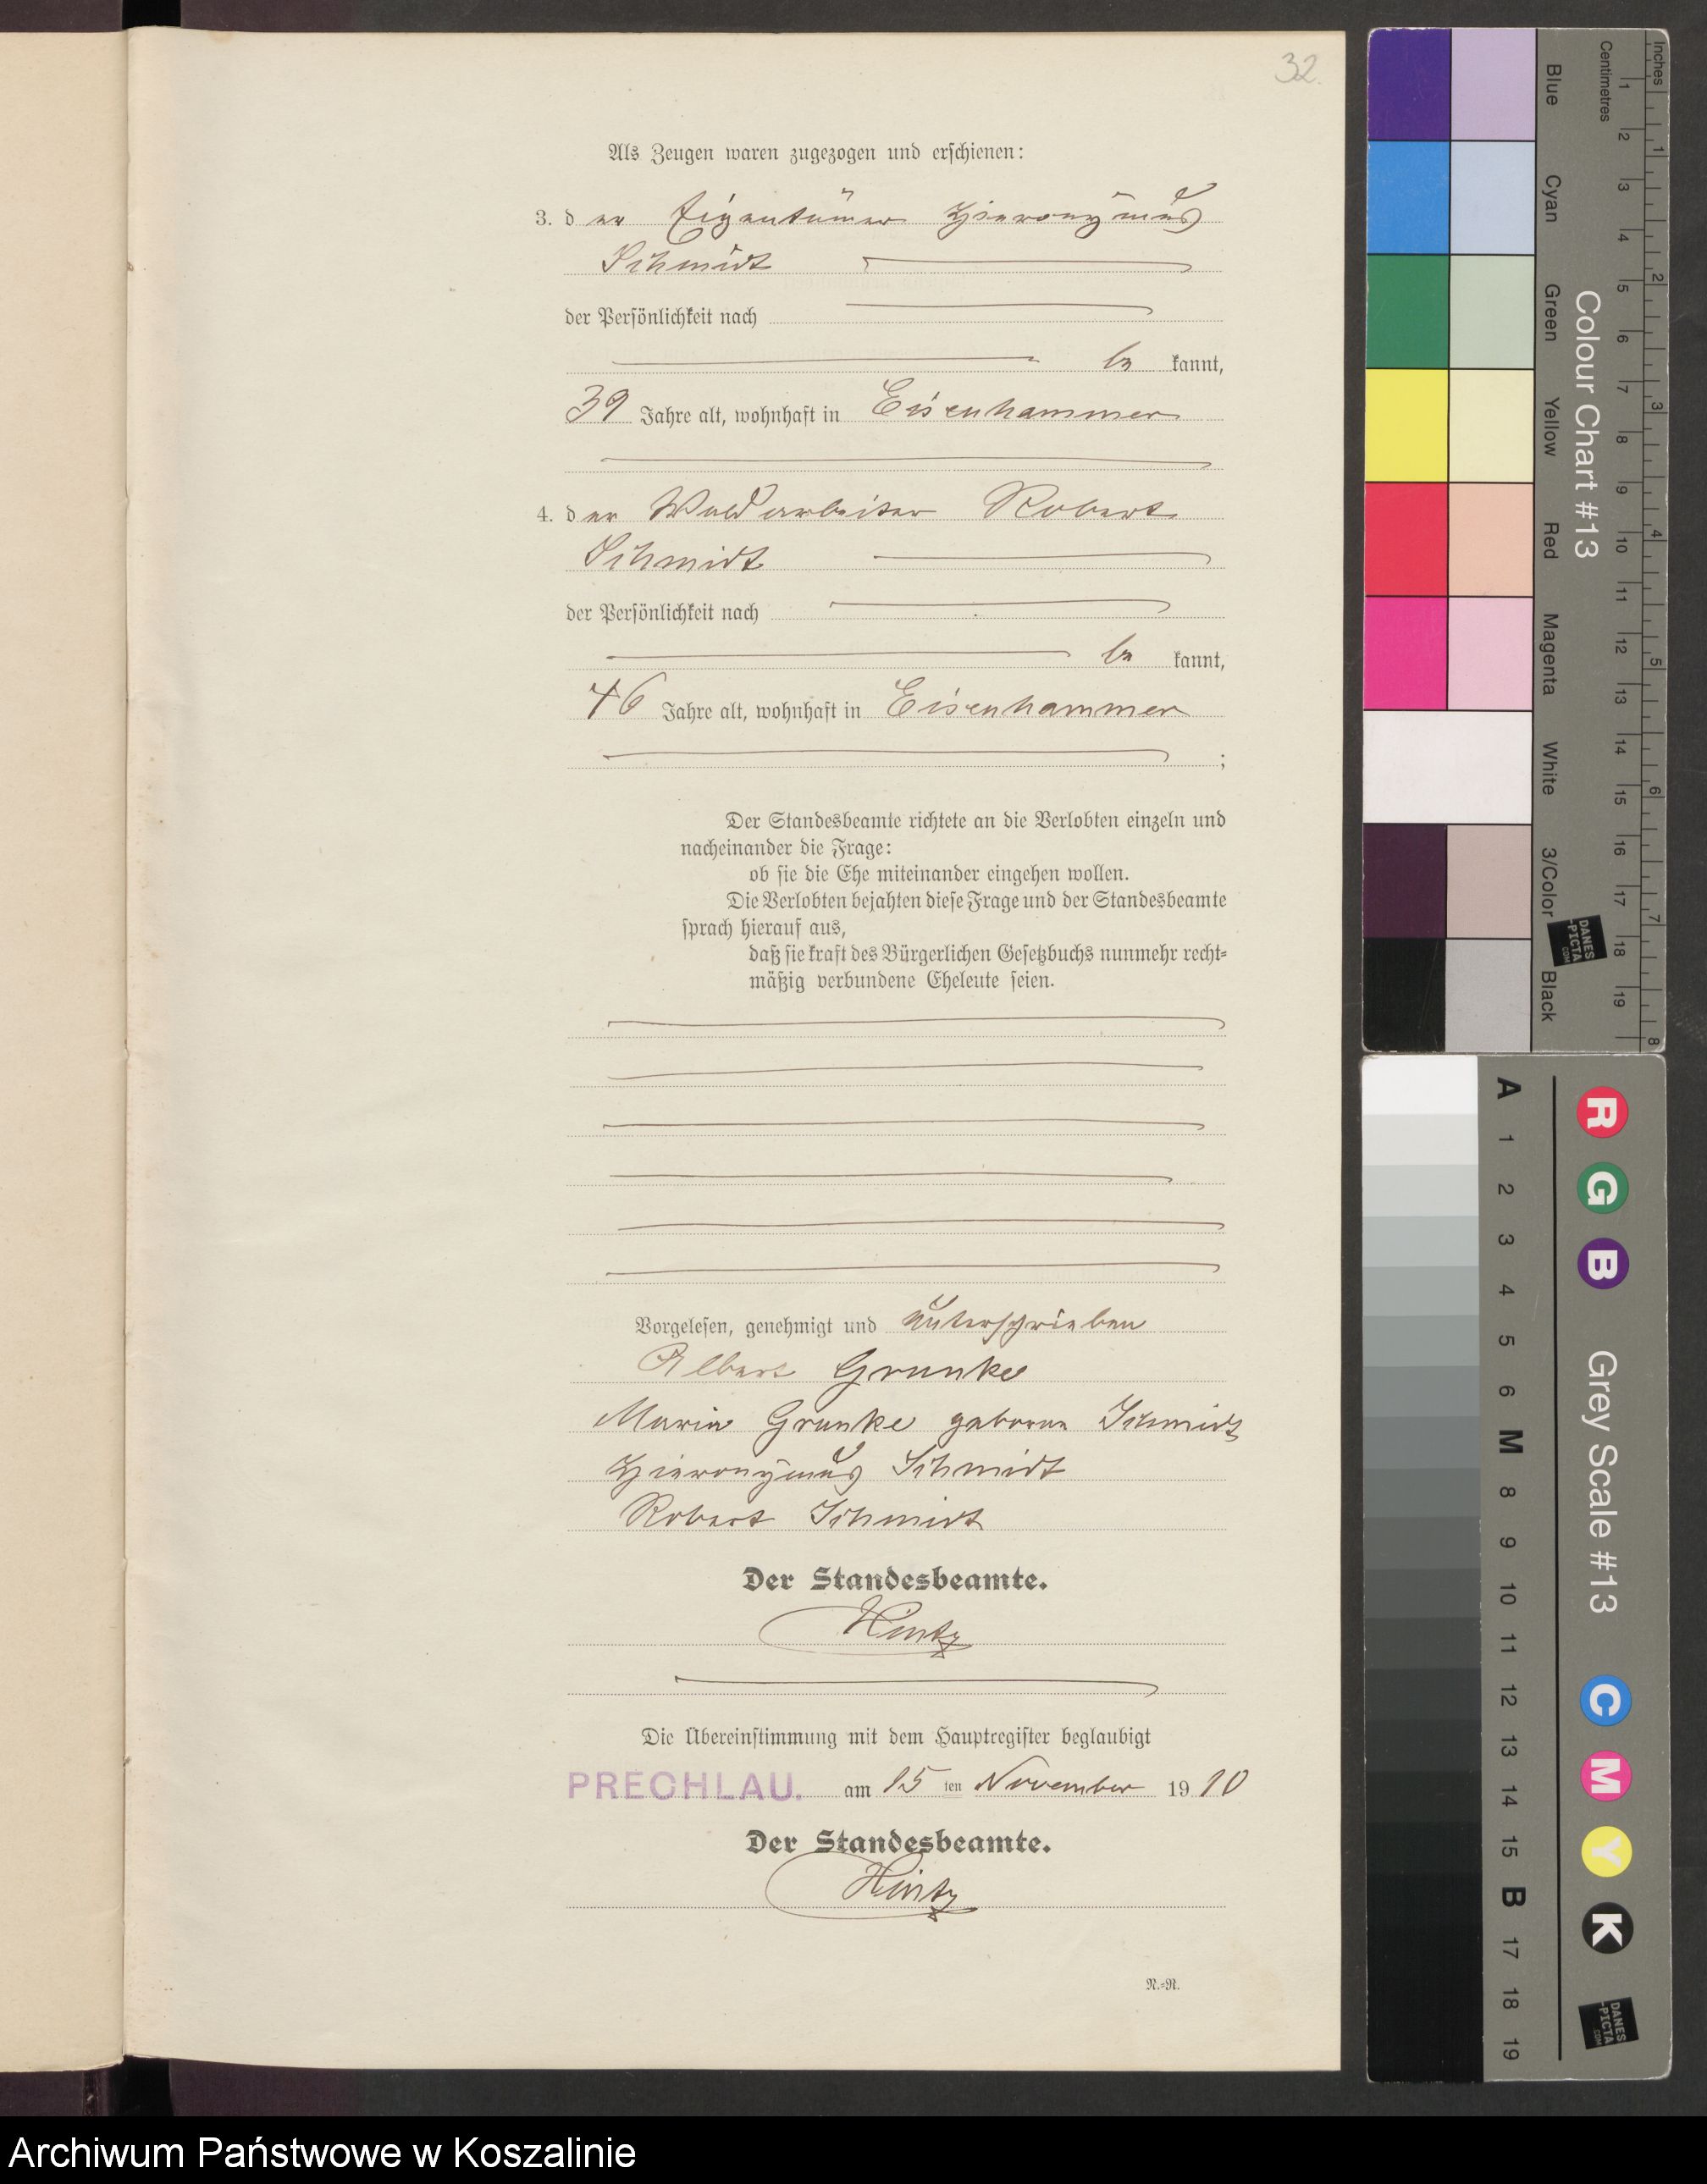 32.
Als Zeugen waren zugezogen und erschienen:
3. der Eigentümer Hieronymus
Schmidt
der Persönlichkeit nach
be kannt,
39 Jahre alt, wohnhaft in Eisenhammer
4. der Waldarbeiter Robert
Schmidt
der Persönlichkeit nach
be kannt,
46 Jahre alt, wohnhaft in Eisenhammer
;
Der Standesbeamte richtete an die Verlobten einzeln und
nacheinander die Frage:
ob sie die Ehe miteinander eingehen wollen.
Die Verlobten bejahten diese Frage und der Standesbeamte
sprach hierauf aus,
daß sie kraft des Bürgerlichen Gesetzbuchs nunmehr recht-
mäßig verbundene Eheleute seien.
Vorgelesen, genehmigt und unterschrieben
Albert Grunke
Maria Grunke geborene Schmidt
Hieronymus Schmidt
Robert Schmidt
Der Standesbeamte.
Hintz
Die Übereinstimmung mit dem Hauptregister beglaubigt
PRECHLAU. am 15 ten November 1910
Der Standesbeamte.
Hintz
N.-R.
Inches 1 2 3 4 5 6 7 8
Centimetres 1 2 3 4 5 6 7 8 9 10 11 12 13 14 15 16 17 18 19
Colour Chart #13
Blue Cyan Green Yellow Red Magenta White 3/Color Black
DANES
-PICTA
.COM
A 1 2 3 4 5 6 M 8 9 10 11 12 13 14 15 B 17 18 19
R G B
Grey Scale #13
C M Y K
DANES
-PICTA
.COM
Archiwum Państwowe w Koszalinie